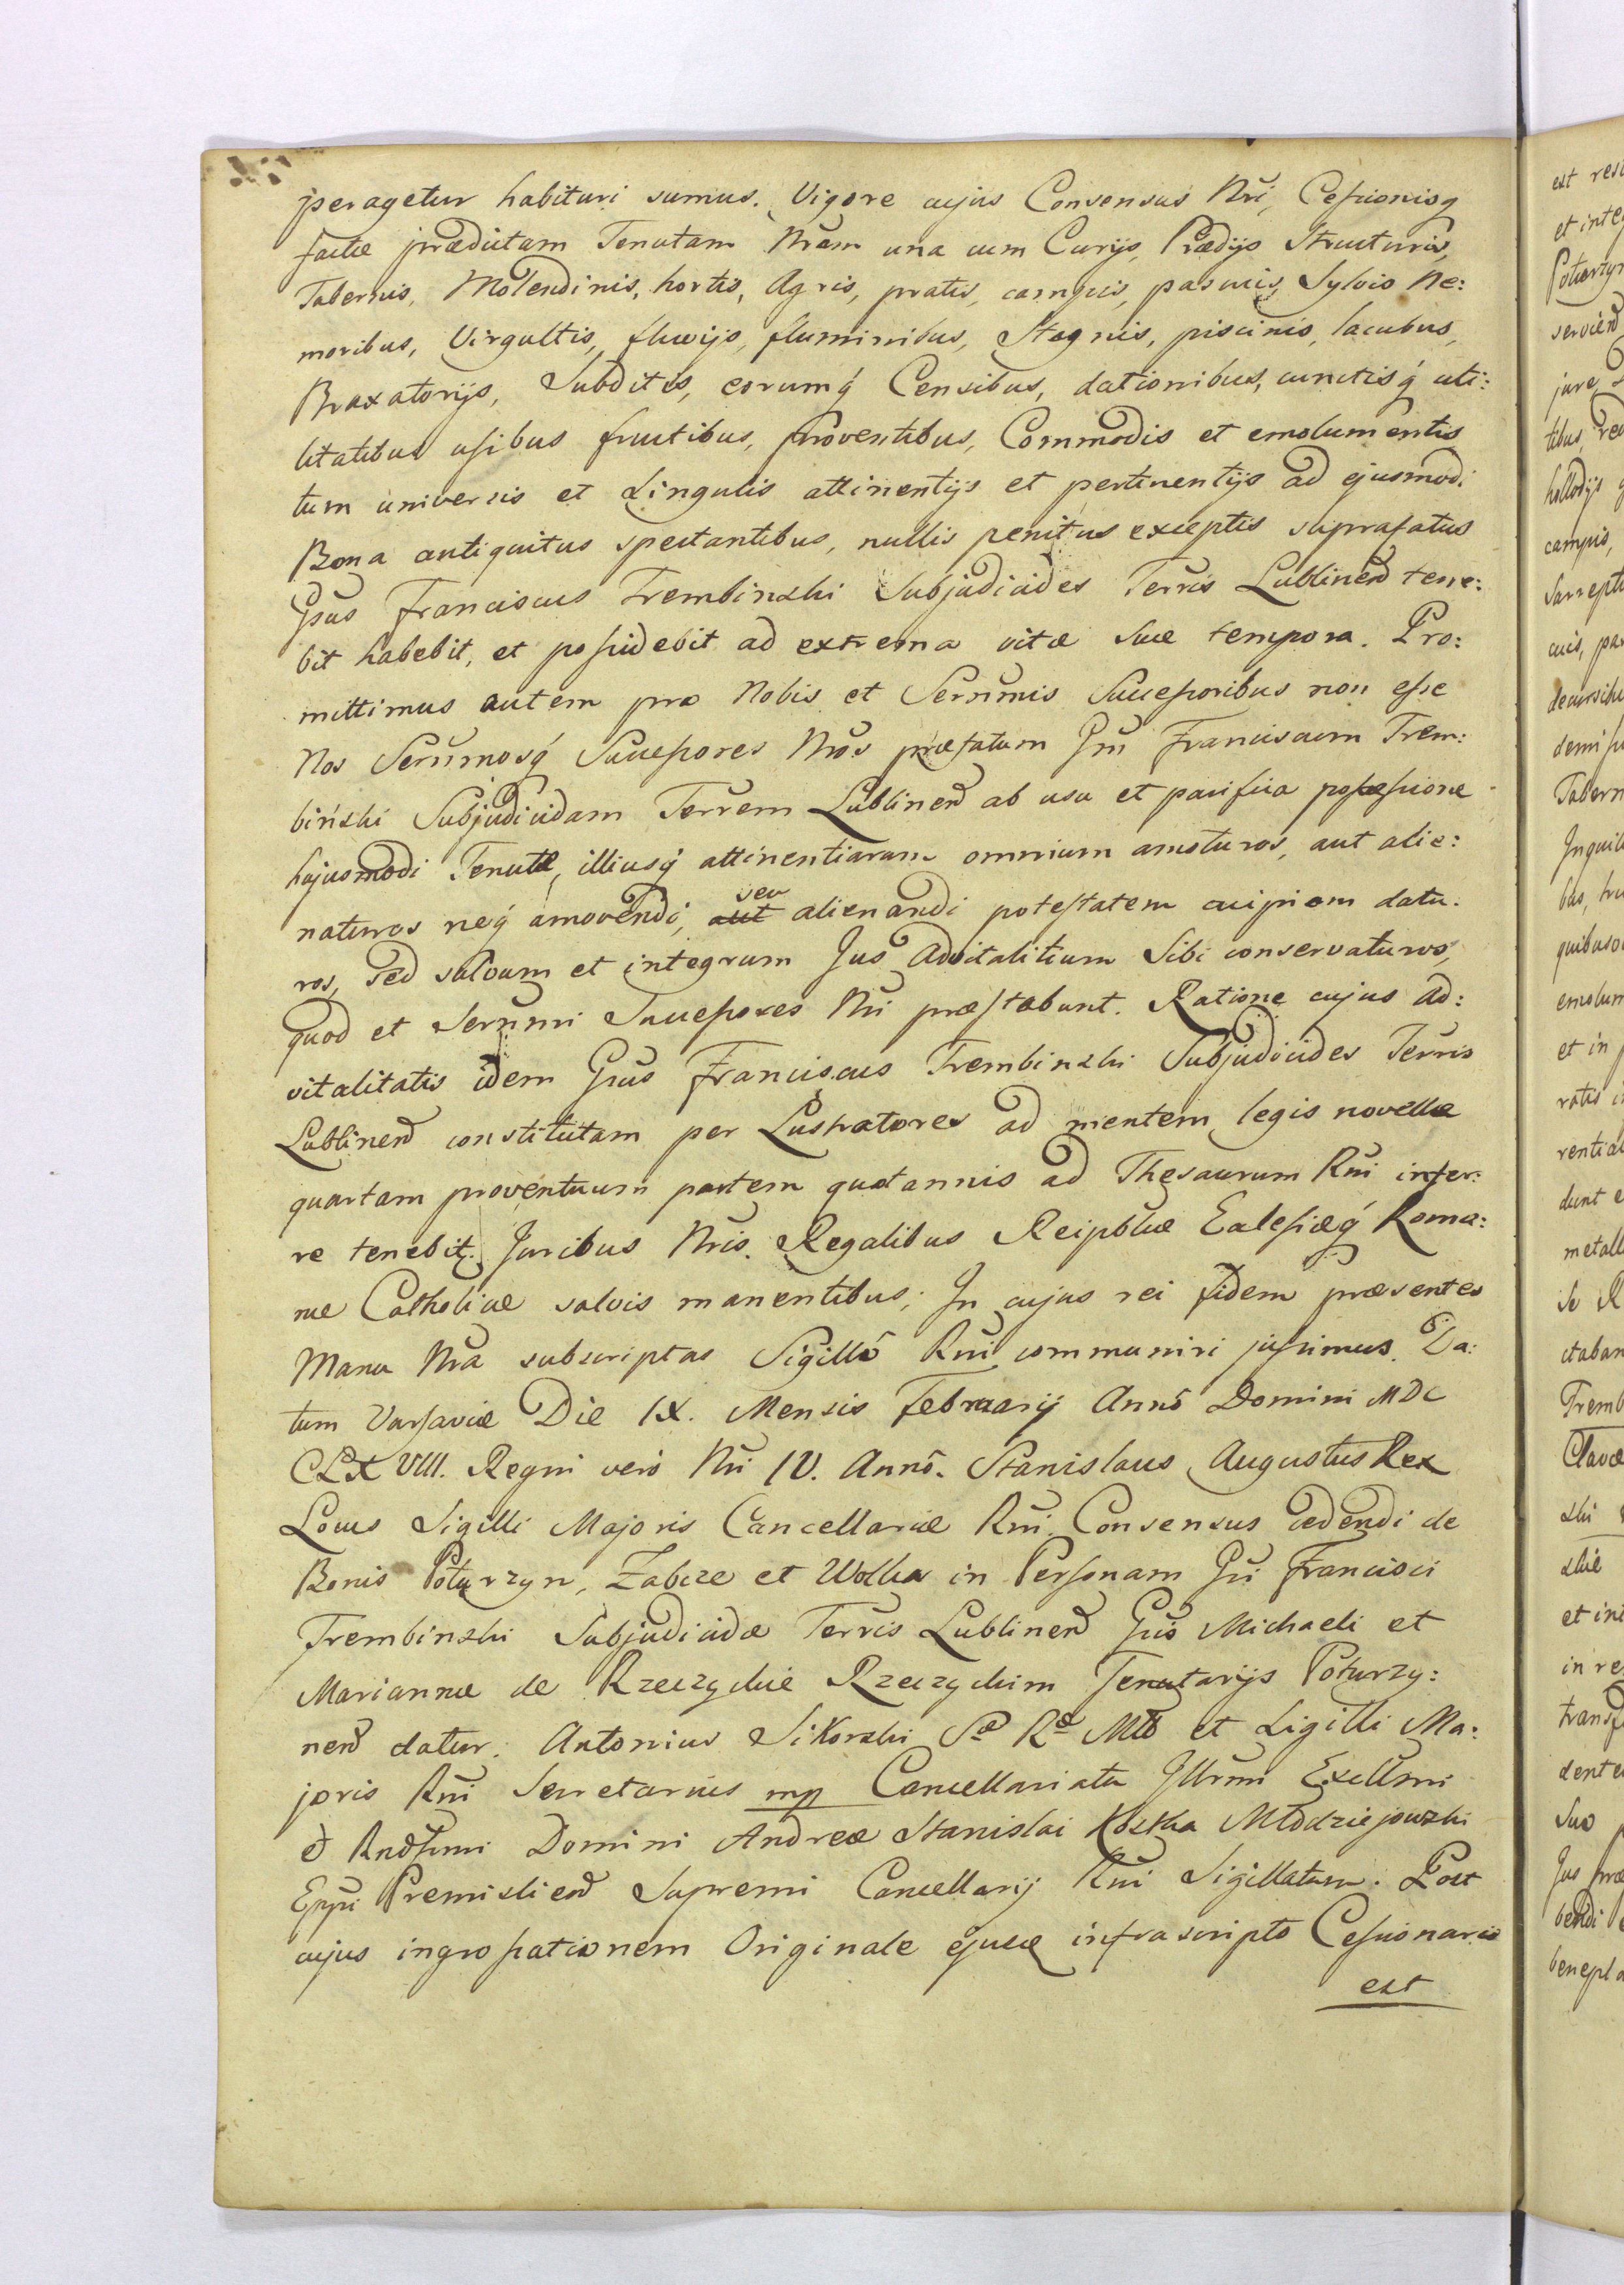 peragetur habituri sumus. Vigore cujus Consensus Nri, Cessionisq
factæ prædictam Tenutam Nram una cum Curijs, Prædijs Structuris,
Tabernis, Molendinis, hortis, Agris, pratis, campis, pascuis, Sylvis Ne:
moribus, Virgultis, fluvijs, fluminibus, Stagnis, piscinis, lacubus,
Braxatorijs, Subditis, eorumq́ Censibus, dationibus, cunctisq́ uti:
litatibus usibus fructibus, proventibus, Commodis et emolumentis
tum universis et singulis attinentijs et pertinentijs ad ejusmodi
Bona antiquitus spectantibus, nullis penitus exceptis suprafatus
Gsus Franciscus Trembinski Subjudicides Terris Lublinen̄ tene:
bit habebit, et possidebit ad extrema vitæ suæ tempora. Pro:
mittimus autem pro Nobis et Serenmis Successoribus non esse
Nos Serenmosq́ Successores Nros præfatum Gm Franciscum Trem:
biński Subjudicidam Terrem Lublinen̄ ab usu et pacifica possessione
hujusmodi Tenutæ, illiusq́ attinentiarum omnium amoturos, aut alie:
naturos neq́ amovendi, aut seu alienandi potestatem cuipiam datu:
ros, sed salvum et integrum Jus Advitalitium Sibi conservaturos,
quod et Serenmi Successores Nri præstabunt. Ratione cujus ad:
vitalitatis idem Gsus Franciscus Trembinski Subjudicides Terris
Lublinen̄ constitutam per Lustratores ad mentem legis novellæ
quartam proventuum partem quotannis ad Thesaurum Rni infer:
re tenebit. Juribus Nris. Regalibus Reipblicæ Ecclesiæq́ Roma:
næ Catholicæ salvis manentibus; In cujus rei fidem præsentes
Manu Nra subscriptas Sigillo Rni communiri jussimus. Da:
tum Varsaviæ Die IX. Mensis Februarij Anno Domini MDC
CLXVIII. Regni vero Nri IV. Anno. Stanislaus Augustus Rex
Locus Sigilli Majoris Cancellariæ Rni. Consensus cedendi de
Bonis Poturzyn, Zabcze et Wolka in Personam Gsi Francisci
Trembinski Subjudicidæ Terris Lublinen̄ Gsis Michaeli et
Mariannæ de Rzeczyckie Rzeczyckim Tenutarijs Poturzy:
nen̄ datur. Antonius Sikorski Sæ Ræ Mtis et Sigilli Ma:
joris Rni Secretarius mp Cancellariatu Illrmi Excllsmi
& Rndssimi Domini Andreæ Stanislai Kostka Młodziejowski
Eppi Premislien̄ Supremi Cancellarij Rni Sigillatum. Post
cujus ingrossationem Originale ejusdem infrascripto Cessionario
est